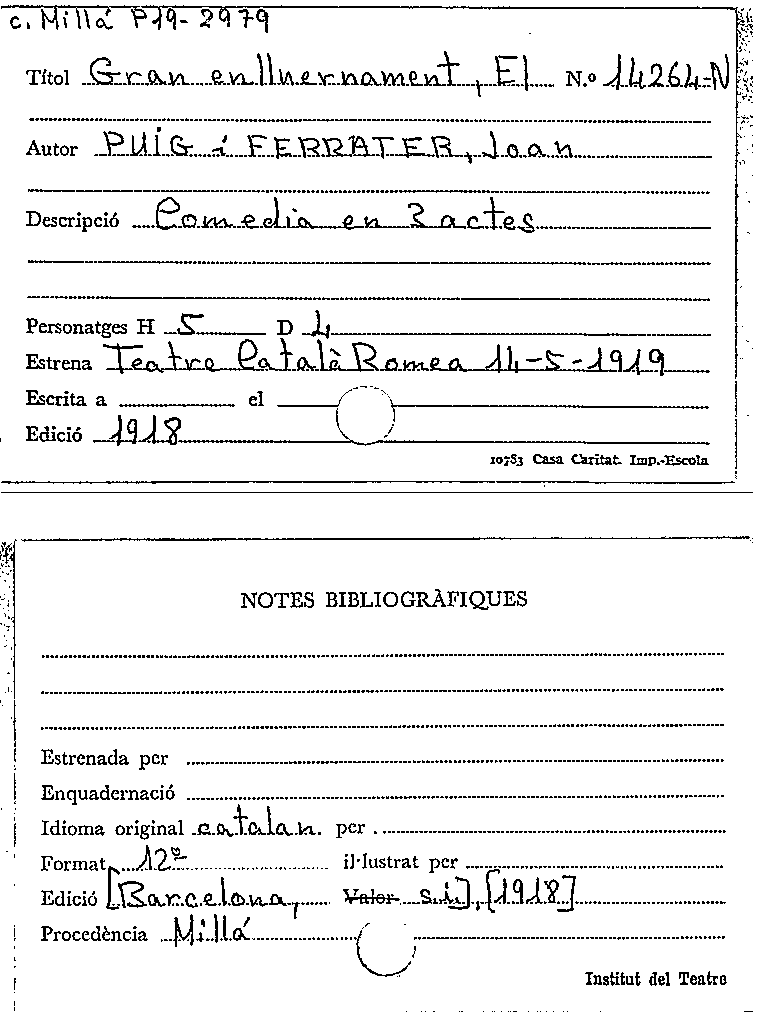 c. Millá P19-2979
Títol Gran enlluernament, El N.º 14264-N
Autor PUIG i FERRATER, Joan
Descripció Comedia en 3 actes
Personatges H 5 D 4
Estrena Teatre Català Romea 14-5-1919
Escrita a el
Edició 1918
10783 Casa Caritat. Imp.-Escola
NOTES BIBLIOGRÀFIQUES
Estrenada per
Enquadernació
Idioma original catalan. per
Format 12º il·lustrat per
Edició [Barcelona, Valor s.i.], [1918]
Procedència Millá
Institut del Teatre